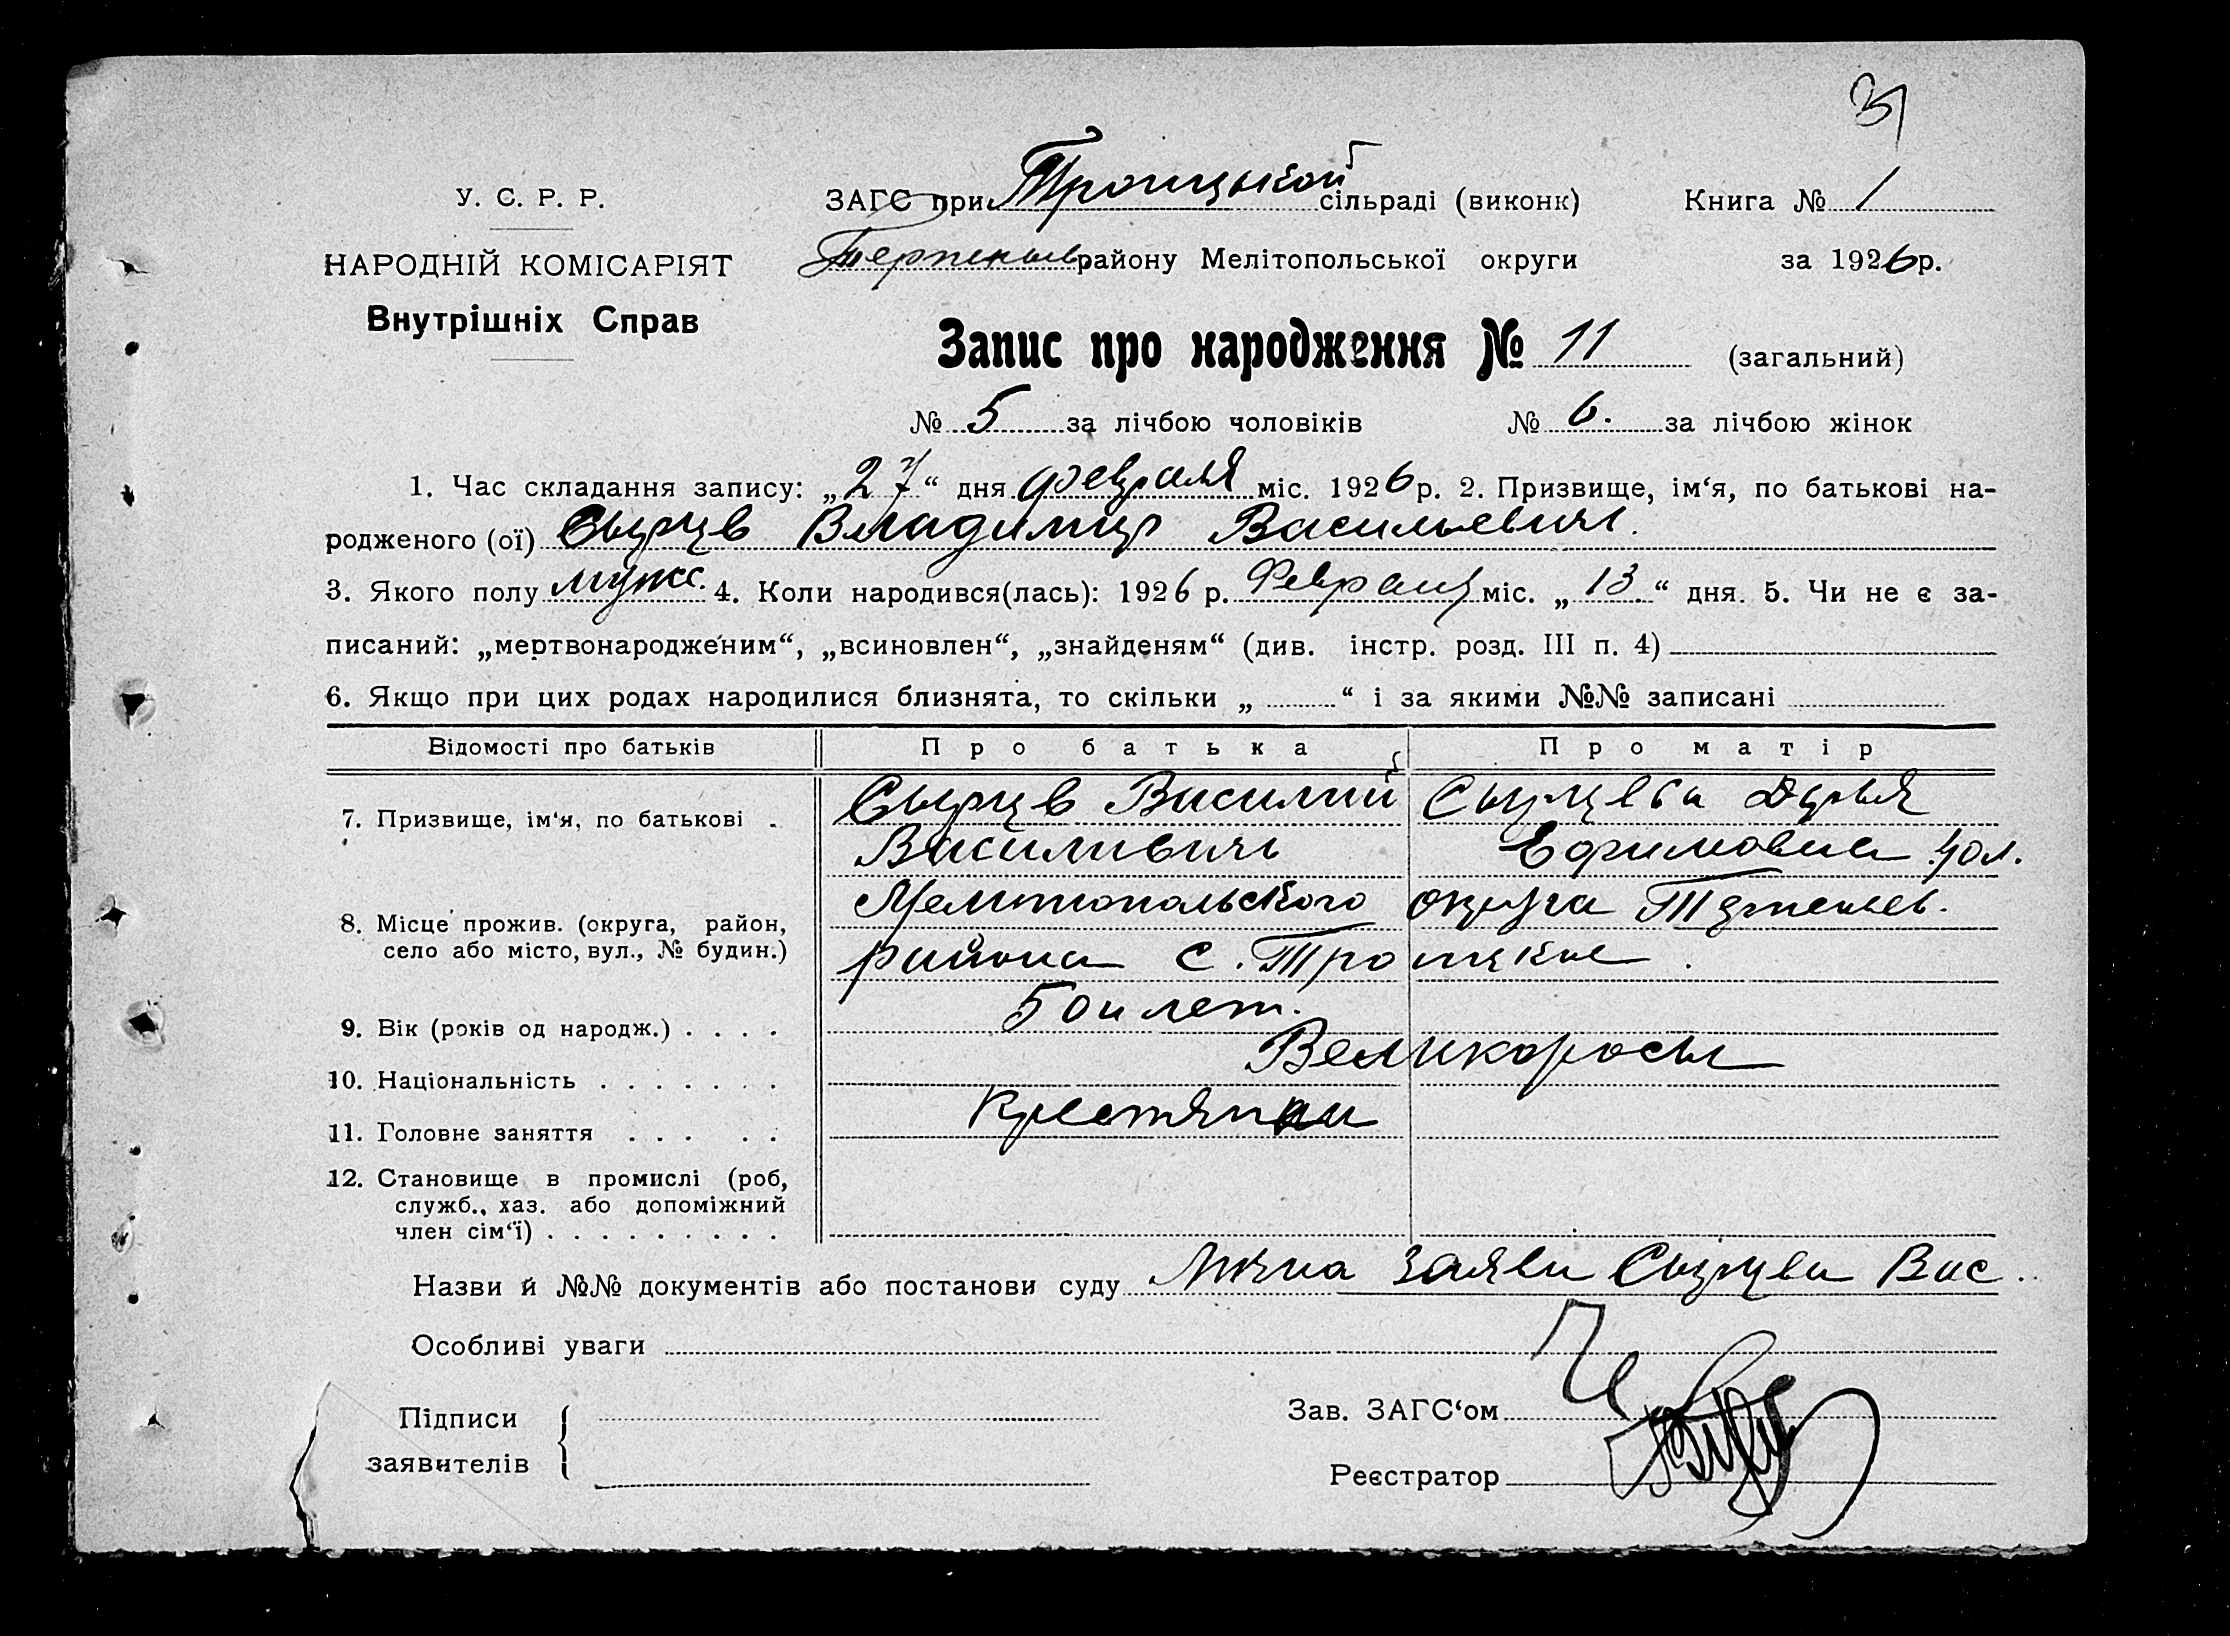 31
У. С. Р. Р.
НАРОДНІЙ КОМІСАРІЯТ
Внутрішніх Справ
ЗАГС при Троицькой сільраді (виконк) Книга № 1
Терпеньев району Мелітопольської округи за 1926 р.
Запис про народження № 11 (загальний)
№ 5 за лічбою чоловіків № 6. за лічбою жінок
1. Час складання запису: „27“ дня февраля міс. 1926 р. 2. Призвище, ім‘я, по батькові на-
родженого (ої) Сырцев Владимир Васильевич.
3. Якого полу мужс. 4. Коли народився(лась): 1926 р. Февраля міс. „13.“ дня. 5. Чи не є за-
писаний: „мертвонародженим“, „всиновлен“, „знайденям“ (див. інстр. розд. III п. 4)
6. Якщо при цих родах народилися близнята, то скільки „ “ і за якими №№ записані
Відомості про батьків Про батька Про матір
7. Призвище, ім‘я, по батькові . Сырцев Василий Сырцева Дарья
Василивичь Ефимовна 40 л.
8. Місце прожив. (округа, район, село або місто, вул., № будин.) Мелитопольского округа Терпеньев.
района с. Троицкое.
9. Вік (років од народж.) . . . . 50 и лет.
10. Національність . . . . . . . Великоросы
11. Головне заняття . . . . . Крестяни
12. Становище в промислі (роб,
служб., хаз. або допоміжний
член сім‘ї) . . . . . . . . .
Назви й №№ документів або постанови суду Лична заяви Сырцева Вас..
Особливі уваги
Підписи
заявителів
Зав. ЗАГС‘ом
Реєстратор